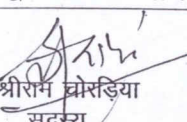 श्रीराम चोरड़िया
सदस्य